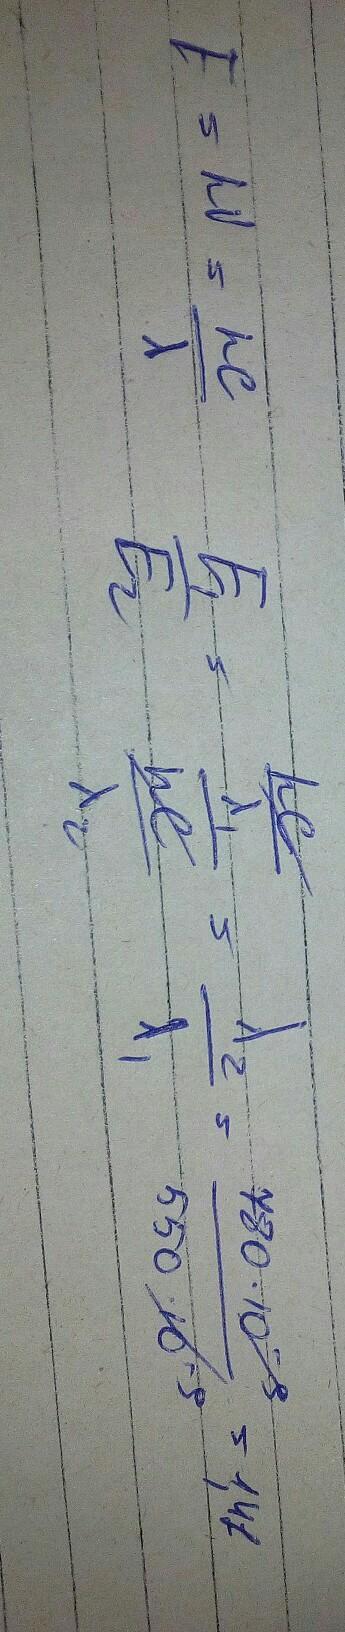 E = hν = hc/λ   E₁/E₂ = (hc/λ₁)/(hc/λ₂) = λ₂/λ₁ = 780·10⁻⁹/550·10⁻⁹ = 1,42